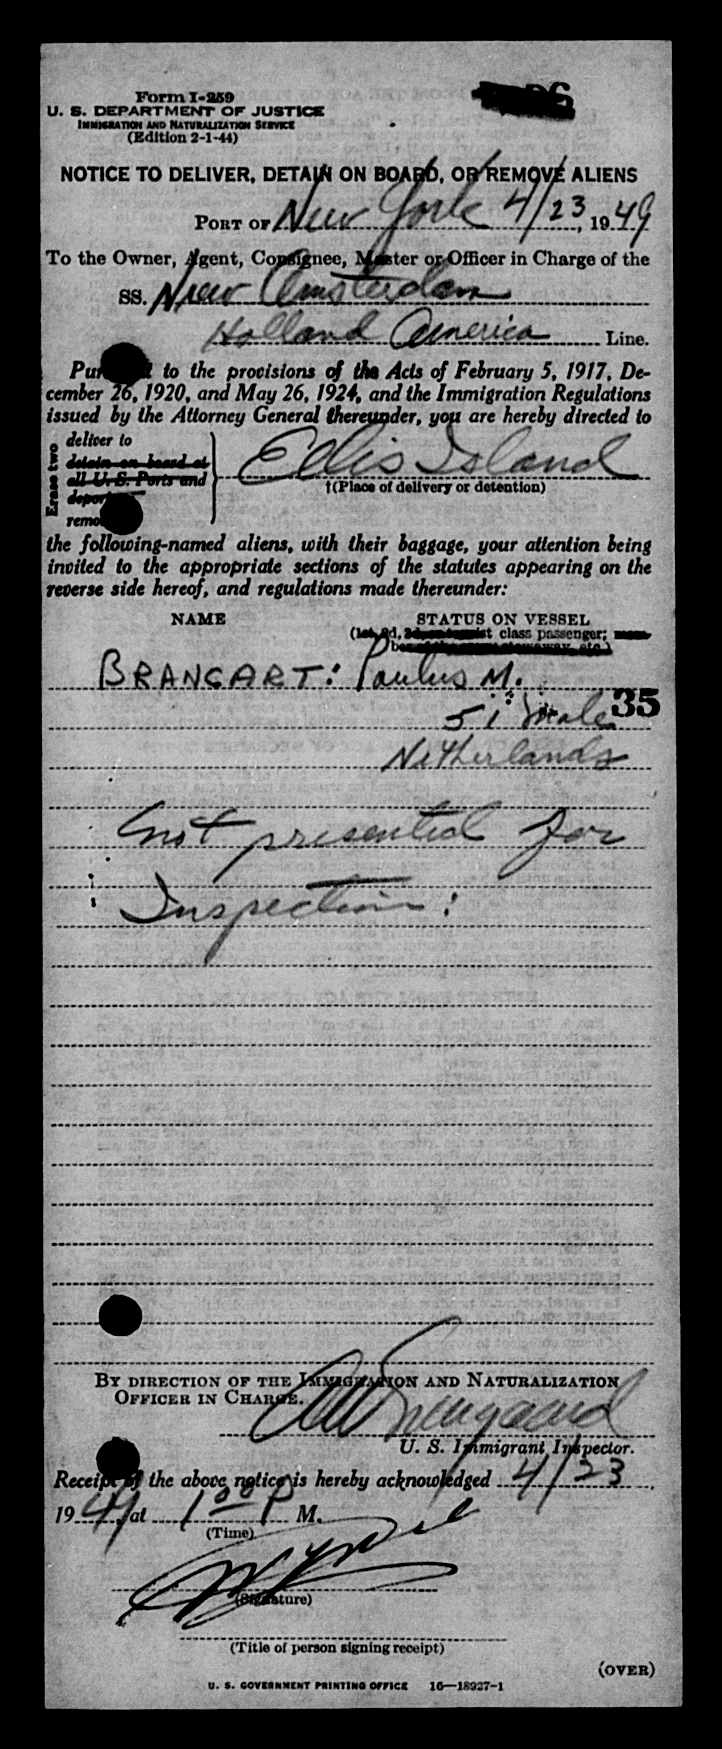 Form I-259
U. S. DEPARTMENT OF JUSTICE
IMMIGRATION AND NATURALIZATION SERVICE
(Edition 2-1-44)
NOTICE TO DELIVER, DETAIN ON BOARD, OR REMOVE ALIENS
PORT OF New York 4/23, 1949
To the Owner, Agent, Consignee, Master or Officer in Charge of the
SS. New Amsterdam
Holland America Line.
to the provisions of the Acts of February 5, 1917, De-
cember 26, 1920, and May 26, 1924, and the Immigration Regulations
issued by the Attorney General thereunder, you are hereby directed to
Erase two
deliver to
detain on board at
all U. S. Ports and
Ellis Island
†(Place of delivery or detention)
the following-named aliens, with their baggage, your attention being
invited to the appropriate sections of the statutes appearing on the
reverse side hereof, and regulations made thereunder:
NAME STATUS ON VESSEL
(1st, 2d, class passenger;
BRANGART: Paulus M.
35
51 Male
Netherlands
not presented for
Inspection:
BY DIRECTION OF THE IMMIGRATION AND NATURALIZATION
OFFICER IN CHARGE.
U. S. Immigrant Inspector.
Receipt of the above notice is hereby acknowledged 4/23
1949, at 1 00 P M.
(Time)
(Signature)
(Title of person signing receipt)
(OVER)
U. S. GOVERNMENT PRINTING OFFICE 16—18927-1